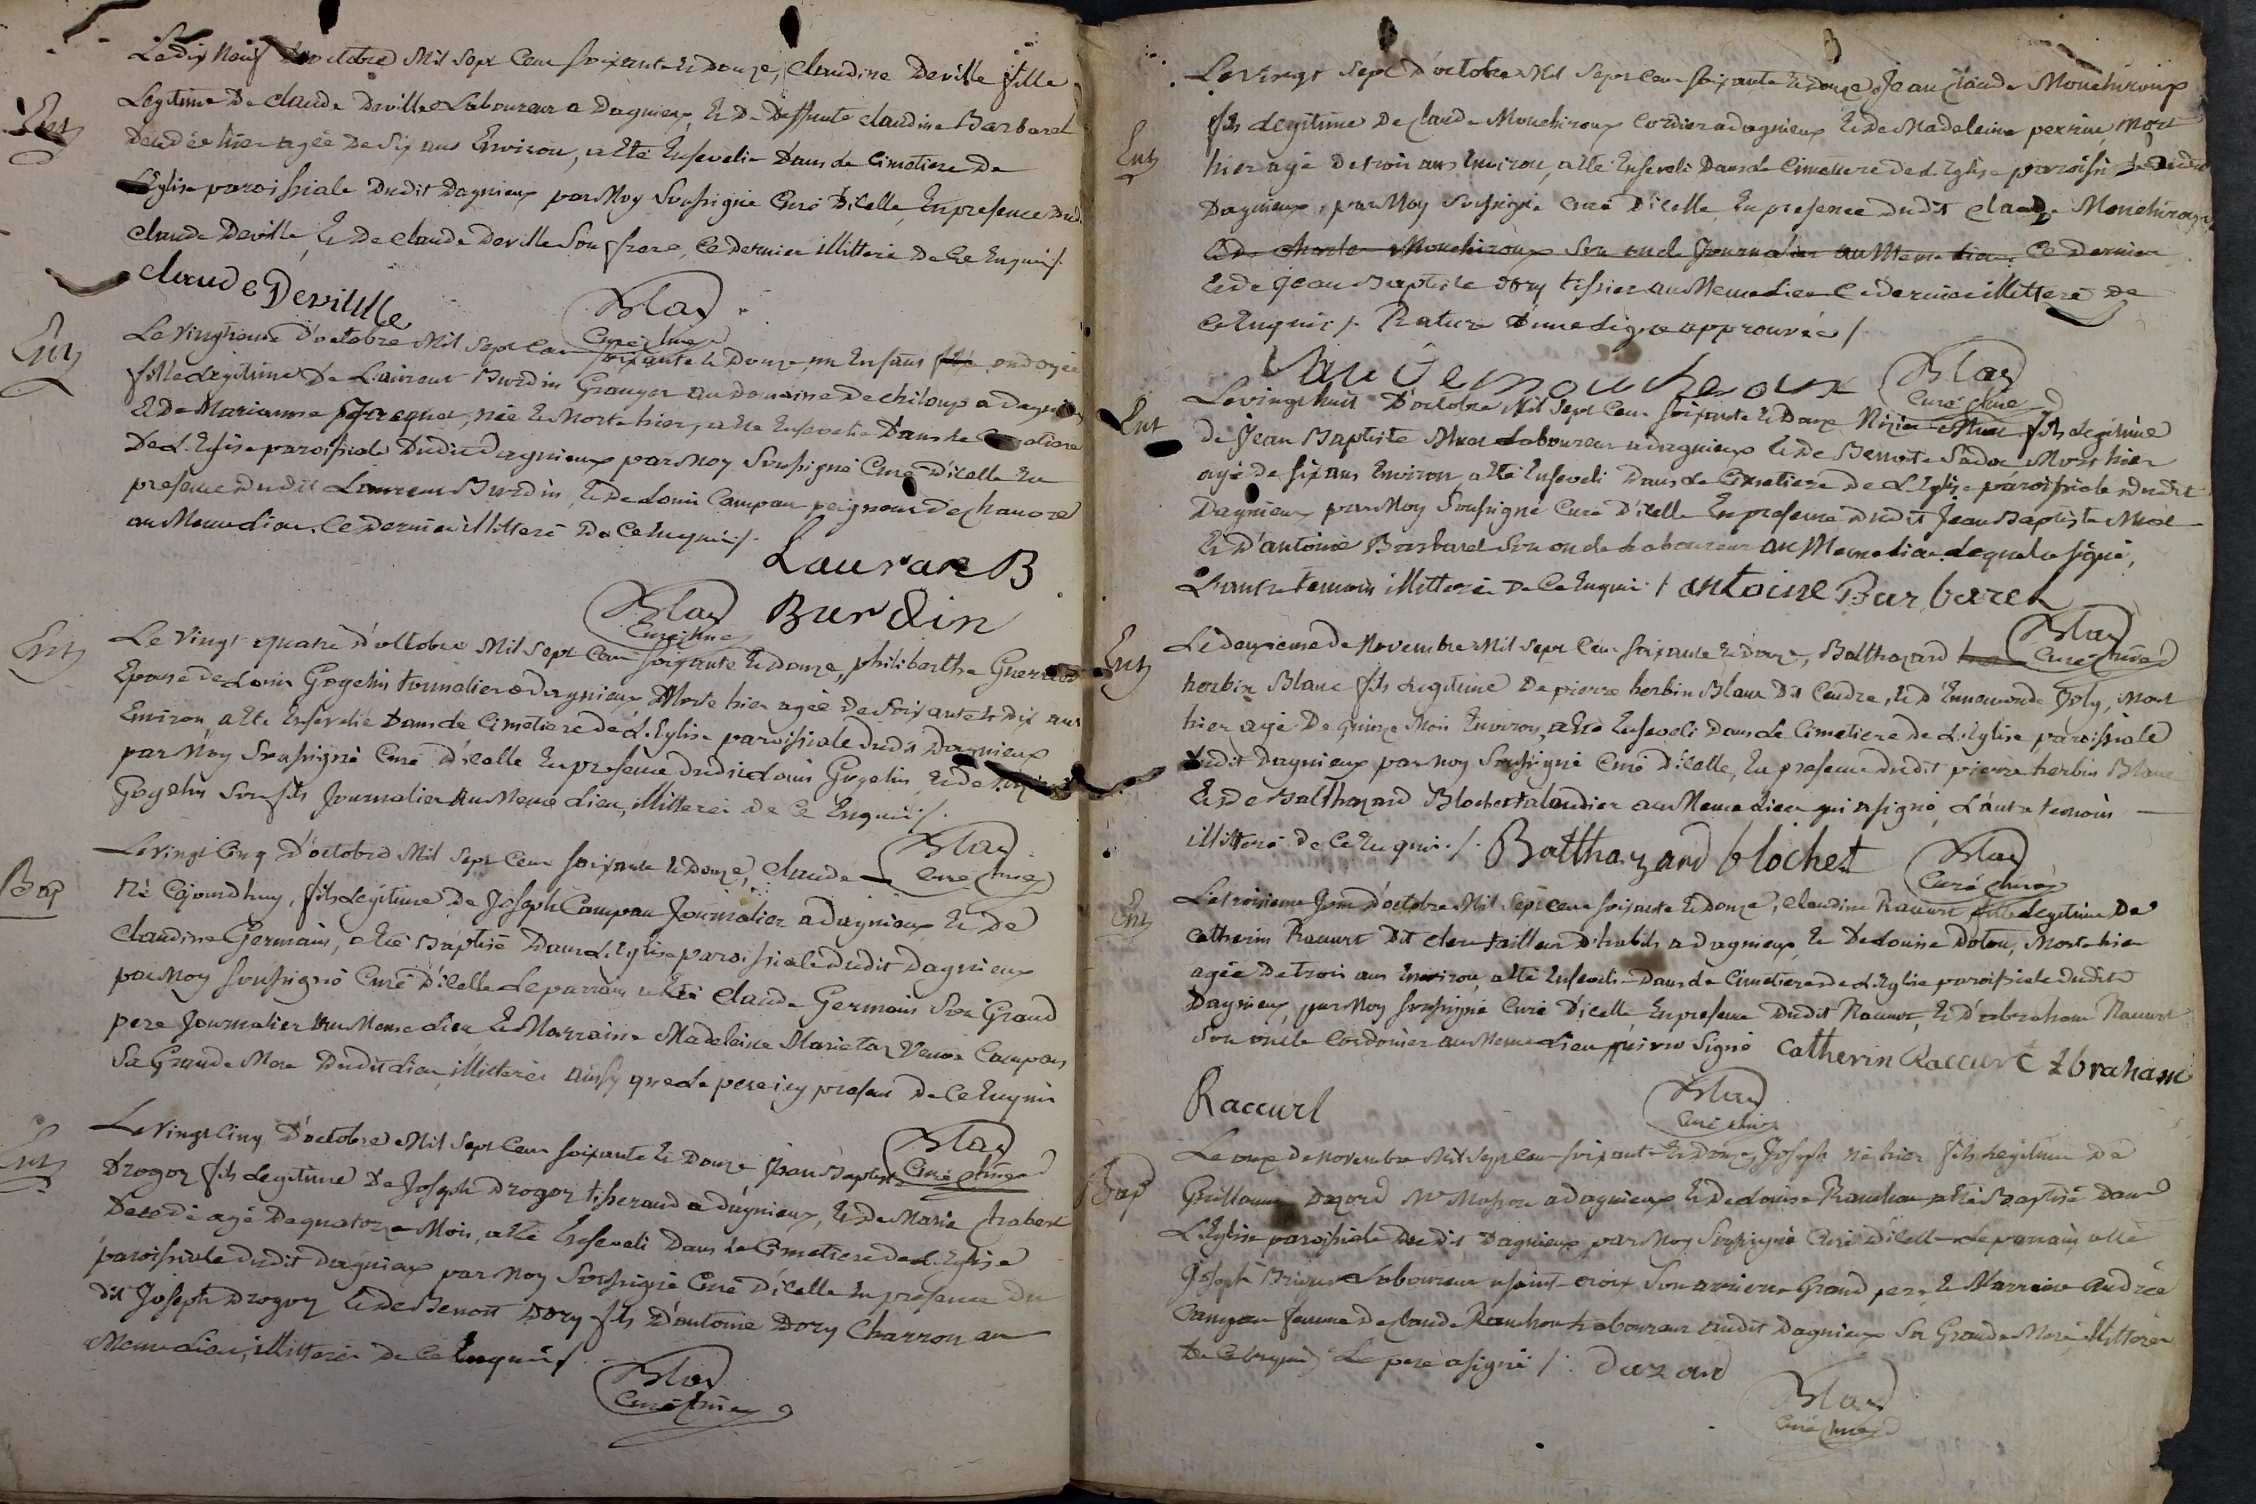 Ent
Le dix Neuf d'octobre Mil Sept Cent soixante Et Douze, Claudine Deville fille
Legitime De claude Deville Laboureur a Dagnieux, Et De Deffunte claudine Barbaret
Decedée hier agée De six ans Environ, a Eté Ensevelie Dans Le Cimetiere De
L'Eglise paroissiale Dudit Dagnieux par Moy Soussigné Curé D'icelle En presence Dud.
Claude Deville, Et De claude Deville Son frere, Ce Dernier illitteré De Ce Enquis /.
claude Devillle
Blay
Curé
Ent
Le Vingtieme D'octobre Mil Sept Cent soixante Et Douze, un Enfant ondoyé
fille Legitime De Laurent Burdin Granger au Domaine De chiloup a Dagnieux
Et De Marianne Jacquet, née Et Morte hier, a Eté Ensevelie Dans Le Cimetiere
De L'Eglise paroissiale Dudit Dagnieux par Moy Soussigné Curé D'icelle En
presence Dudit Laurent Burdin, Et De Louis Campan peigneur De chanvre
au Meme Lieu, Ce Dernier illitteré De Ce Enquis /.
Lauran B
Burdin
Blay
Curé
Ent
Le Vingt quatre d'octobre Mil Sept Cent soixante Et Douze, philiberthe
Epouse de Louis Gogelin Journalier a Dagnieux Morte hier agée De Soixante Et Dix ans
Environ, a Eté Ensevelie Dans Le Cimetiere de L'Eglise paroissiale Dudit Dagnieux
par Moy Soussigné Curé D'icelle En presence Dudit Louis Gogelin, Et de
Gogelin Son fils Journalier Au Meme Lieu, illitterés De Ce Enquis /.
Blay
Curé
Bap
Le vingt Cinq D'octobre Mil Sept Cent soixante Et Douze, Claude
Né Cejourdhuy, fils Legitime De Joseph Campan Journalier a Dagnieux Et De
Claudine Germain, a Eté Baptisé Dans L'Eglise paroissiale Dudit Dagnieux
par Moy soussigné Curé D'icelle Le parrain a Eté Claude Germain Son Grand
pere Journalier Au Meme Lieu, Et Marraine Madeleine Veuve Campan
Sa Grande Mere Dudit Lieu, illitterés Ainsy que Le pere icy present De Ce Enquis
Blay
Curé
Ent
Le Vingt Cinq D'octobre Mil Sept Cent soixante Et Douze, Jean Baptiste
Drogoz fils Legitime De Joseph Drogoz tisserand a Dagnieux, Et De Marie Chabert
Decedé agé De quatorze Mois, a Eté Enseveli Dans Le Cimetiere De L'Eglise
paroissiale Dudit Dagnieux par Moy Soussigné Curé D'icelle En presence Du
dit Joseph Drogoz Et De Benoit Dory fils D'antoine Dory Charron au
Meme Lieu, illitterés De Ce Enquis /.
Blay
Curé
Ent
Le vingt Sept D'octobre Mil Sept Cent soixante Et Douze Jean Claude Monchiroux
fils Legitime De Claude Monchiroux Cordier a Dagnieux Et De Madeleine perrin, Mort
hier agé De trois ans Environ, a Eté Enseveli Dans Le Cimetiere De L'Eglise dudit
Dagnieux, par Moy Soussigné Curé D'icelle En presence Dudit Claude Monchiroux
Et De Charles Monchiroux Son oncle Journalier au Meme Lieu, Ce Dernier
Et De Jean Baptiste Dory tissier au Meme Lieu Ce dernier illitteré De
Ce Enquis /. Rature D'une Ligne approuvée /.
Blay
Curé
Ent
Le vingt huit D'octobre Mil Sept Cent soixante Et Douze fils Legitime
De Jean Baptiste Laboureur a Dagnieux Et De Benoite Mort hier
agé De six ans Environ, a Eté Enseveli Dans Le Cimetiere De L'Eglise paroissiale Dudit
Dagnieux par Moy Soussigné Curé D'icelle En presence Dudit Jean Baptiste
Et D'antoine Barbaret Son oncle Laboureur Au Meme Lieu Lequel a signé,
L'autre temoin illitteré De Ce Enquis / antoine Barbaret
Blay
Curé
Ent
Le deuxieme De Novembre Mil Sept Cent soixante Et Douze, Balthazard
herbin Blanc fils Legitime De pierre herbin Blanc Dit Cendre, Et D'Ennemonde Joly, Mort
hier agé De quinze Mois Environ, a Eté Enseveli Dans Le Cimetiere de L'Eglise paroissiale
Dudit Dagnieux par moy Soussigné Curé D'icelle, En presence Dudit pierre herbin Blanc
Et De Balthazard Blochet talandier au Meme Lieu qui a signé, L'autre temoin
illitteré De Ce Enquis /. Balthazard blochet
Blay
Curé
Ent
Le troisieme Jour D'octobre Mil Sept Cent soixante Et Douze, Claudine Racurt fille Legitime De
Catherin Racurt Dit tailleur D'habits a Dagnieux, Et De Louise Morte hier
agée De trois ans Environ, a Eté Ensevelie Dans Le Cimetiere De L'Eglise paroissiale Dudit
Dagnieux, par Moy soussigné Curé D'icelle En presence Dudit Racurt, Et D'abraham Racurt
Son oncle Cordonier au Meme Lieu qui ont Signé Catherin Raccurt Abraham
Raccurt
Blay
Curé
Bap
Le onze De novembre Mil Sept Cent soixante Et Douze Joseph né hier fils Legitime De
Guillaume Dazord Me Masson a Dagnieux Et De Louise Ranchon a Eté Baptisé Dans
L'Eglise paroissiale Dudit Dagnieux par Moy Soussigné Curé D'icelle Le parrain a Eté
Joseph Laboureur a sainte croix Son arriere Grand pere Et Marraine Andrée
Campan femme De Claude Ranchon Laboureur audit Dagnieux Sa Grande Mere illitterée
De Ce Enquis Le pere a signé /. Dazard
Blay
Curé